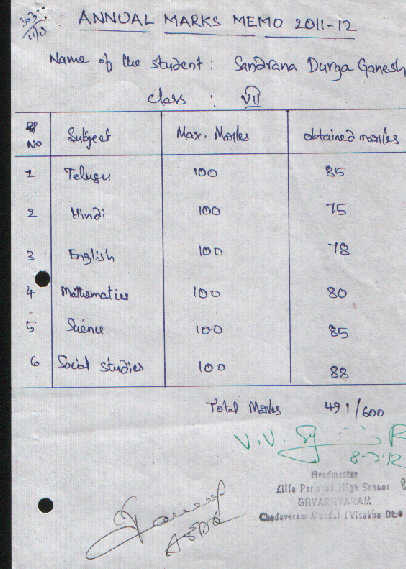 ANNUAL MARKS MEMO 2011-12
Name of the student : Sandrana Durga Ganesh
class : VII
Sl No Subject Max. Marks obtained marks
1 Telugu 100 85
2 Hindi 100 75
3 English 100 78
4 Mathematics 100 80
5 Science 100 85
6 Social studies 100 88
Total Marks 491/600
V.V.
Headmaster
Zilla High